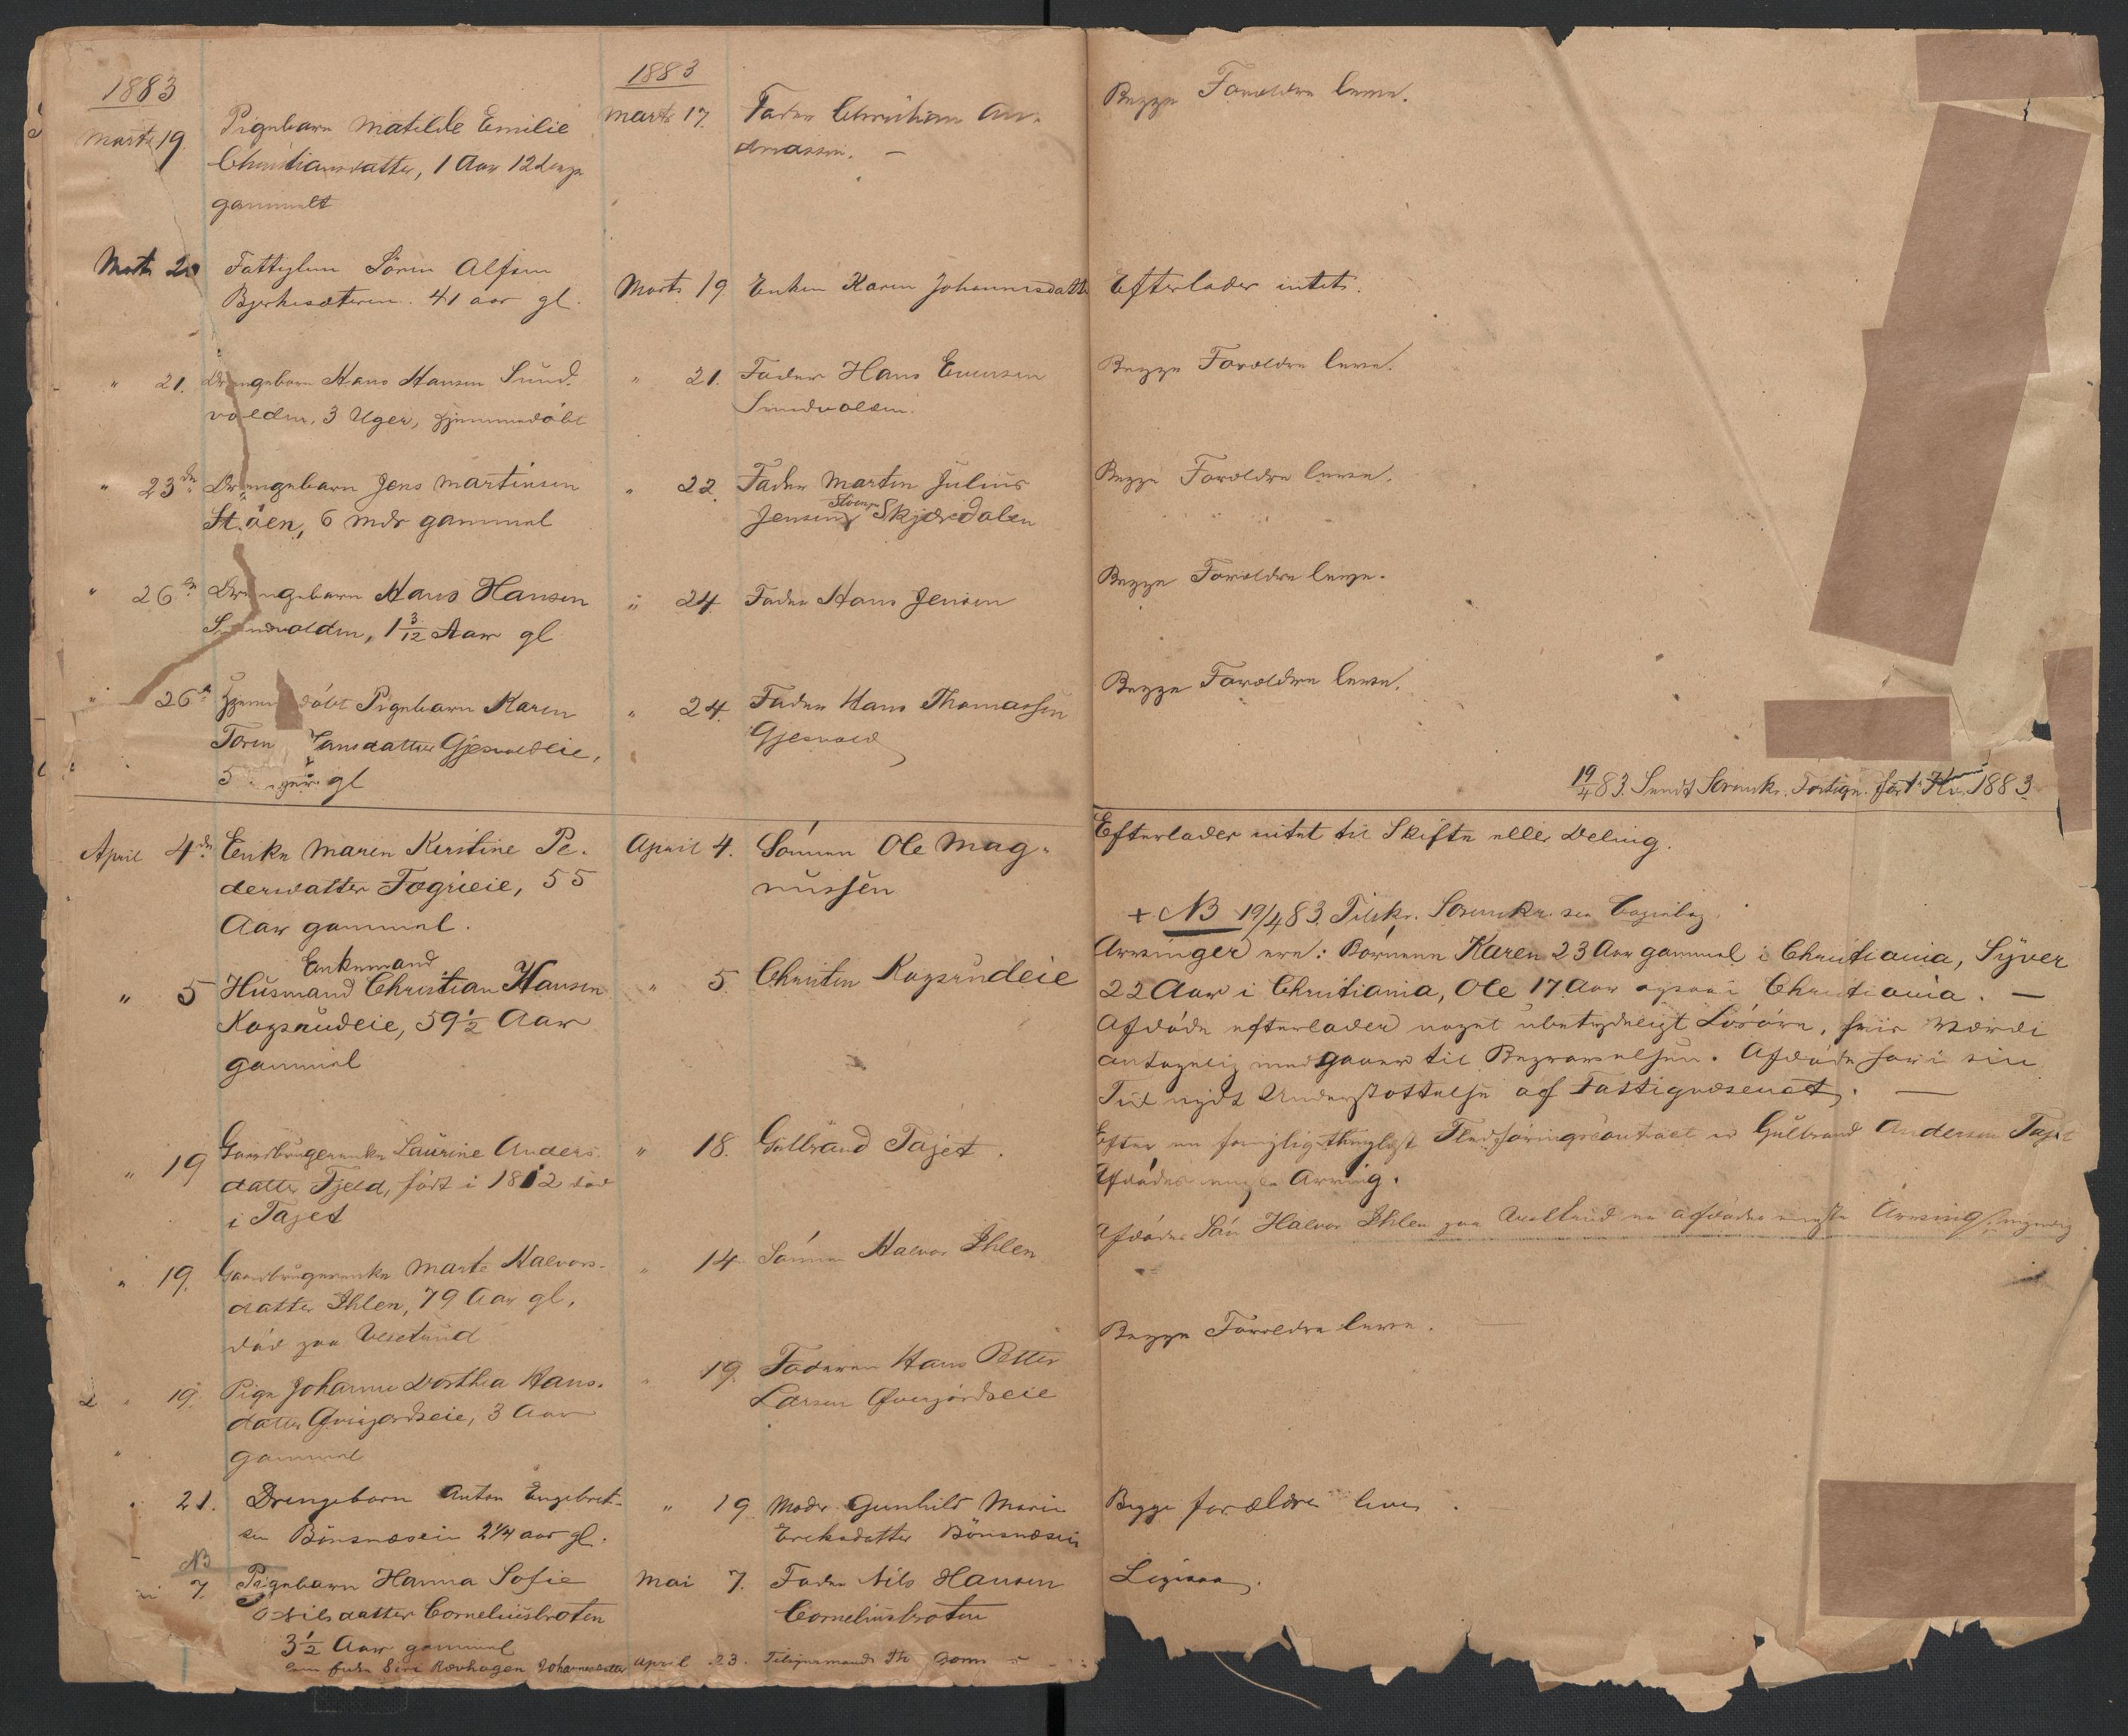 1883
Marts 19.
Pigebarn Matilde Emilie
Christiansdatter, 1 Aar 12 dage
gammelt
1883
Marts 17.
Fader Christian An-
dreassen. —
Begge Forældre leve.
Marts 20
Fattiglem Sören Alfsen
Bjerkesæteren. 41 aar gl.
Marts 19.
Enken Karen Johannesdatte
Efterlader intet.
" 21.
Drengebarn Hans Hansen Sund-
volden, 3 Uger, hjemmedöbt
" 21.
Fader Hans Evensen
Sundvolden.
Begge Forældre leve.
" 23de
Drengebarn Jens Martinsen
Stöen, 6 Mdr gammel
" 22.
Fader Martin Julius
Jensen Stöen Skjærdalen
Begge Forældre leve.
" 26de
Drengebarn Hans Hansen
Sundvolden, 1 3/12 Aar gl
" 24
Fader Hans Jensen
Begge Forældre leve.
" 26de
Hjemmedöbt Pigebarn Karen
Hansdatter Gjesvoldeie,
5 gl
" 24.
Fader Hans Thomassen
Gjesvold
Begge Forældre leve.
19/4 83. Sendt Sorenskr. 1883.
April 4de
Enke Maren Kirstine Pe-
dersdatter Fogrieie, 55
Aar gammel.
April 4.
Sönnen Ole Mag-
nussen
Efterlader intet til Skifte eller Deling.
+ NB 19/4 83. Tilskr. Sorenskr.
" 5
Enkemand
Husmand Christian Hansen
Kagsrudeie, 59 1/2 Aar
gammel
" 5.
Christen Kagsrudeie
Arvinger ere: Börnene Karen 23 Aar gammel i Christiania, Syver
22 Aar i Christiania, Ole 17 Aar ogsaa i Christiania. —
Afdöde efterlader noget ubetydeligt Lösöre, hvis Værdi
antagelig medgaaer til Begravelsen. Afdöde har i sin
Tid nydt Understöttelse af Fattigvæsenet. —
" 19
Gaardbrugerenke Laurine Anders-
datter Fjeld, födt i 1812 död
i Tajet
" 18.
Gulbrand Tajet.
Efter en thinglæst Flædföringscontract er Gulbrand Andersen Tajet
Afdödes eneste Arving.
" 19.
Gaardbrugerenke Marte Halvors-
datter Ihlen, 79 Aar gl,
död paa Veselund
" 14
Sönnen Halvor Ihlen
Afdödes Sön Halvor Ihlen paa er afdödes eneste Arving
" 19.
Pige Johanne Dorthea Hans-
datter 3 Aar
gammel
" 19.
Faderen Hans Petter
Larsen
Begge Forældre leve. —
" 21.
Drengebarn Anton Engebret-
sen Bönsnæseie 2 1/4 aar gl.
" 19.
Moder Gunhild Marie
Ericksdatter Bönsnæseie
Begge forældre lever.
NB
7.
Pigebarn Hanna Sofie
Nilsdatter Corneliusbroten
3 1/2 Aar gammel
Mai 7.
Fader Nils Hansen
Corneliusbroten
Ligesaa.
Siri Rævhagen Johannesdatter
April 23.
Tilsynsmand Th